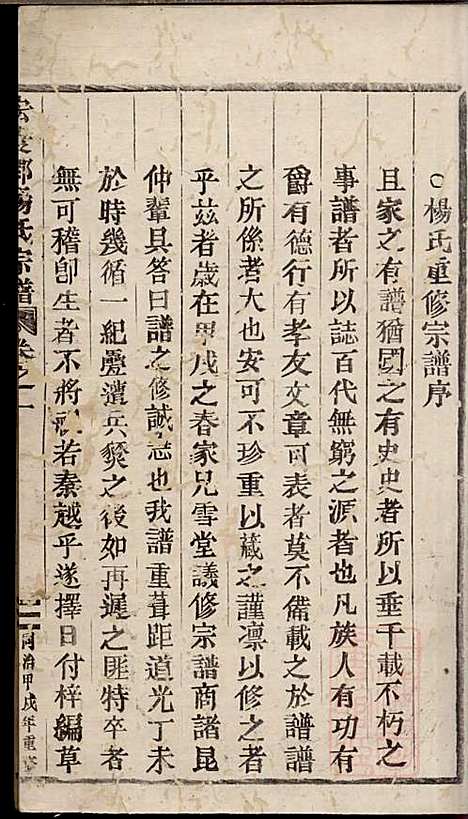 ○楊氏重修宗譜序
且家之有譜猶國之有史史者所以垂千載不朽之
事譜者所以誌百代無窮之源者也凡族人有功有
爵有德行有孝友文章可表者莫不備載之於譜譜
之所係者大也安可不珍重以藏之謹凛以修之者
乎茲者歲在甲戌之春家兄雪堂議修宗譜商諸昆
仲輩具答曰譜之修誠急也我譜重葺距道光丁未
於時幾循一紀疊遭兵燹之後如再遲之匪特卒者
無可稽卽生者不將視若秦越乎遂擇日付梓編草
楊氏宗譜 卷之一
同治甲戌年重修